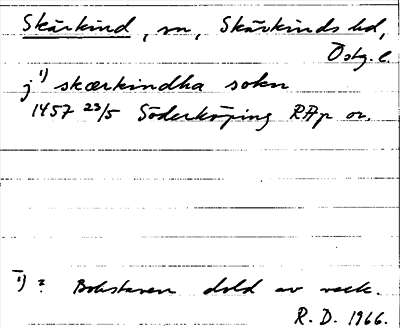 Skärkind, sn, Skärkinds hd,
Östg. l.
j¹) skærkindha sokn
1457 23/5 Söderköping RAp or.
¹) ? Bokstaven dold av veck.
R. D. 1966.